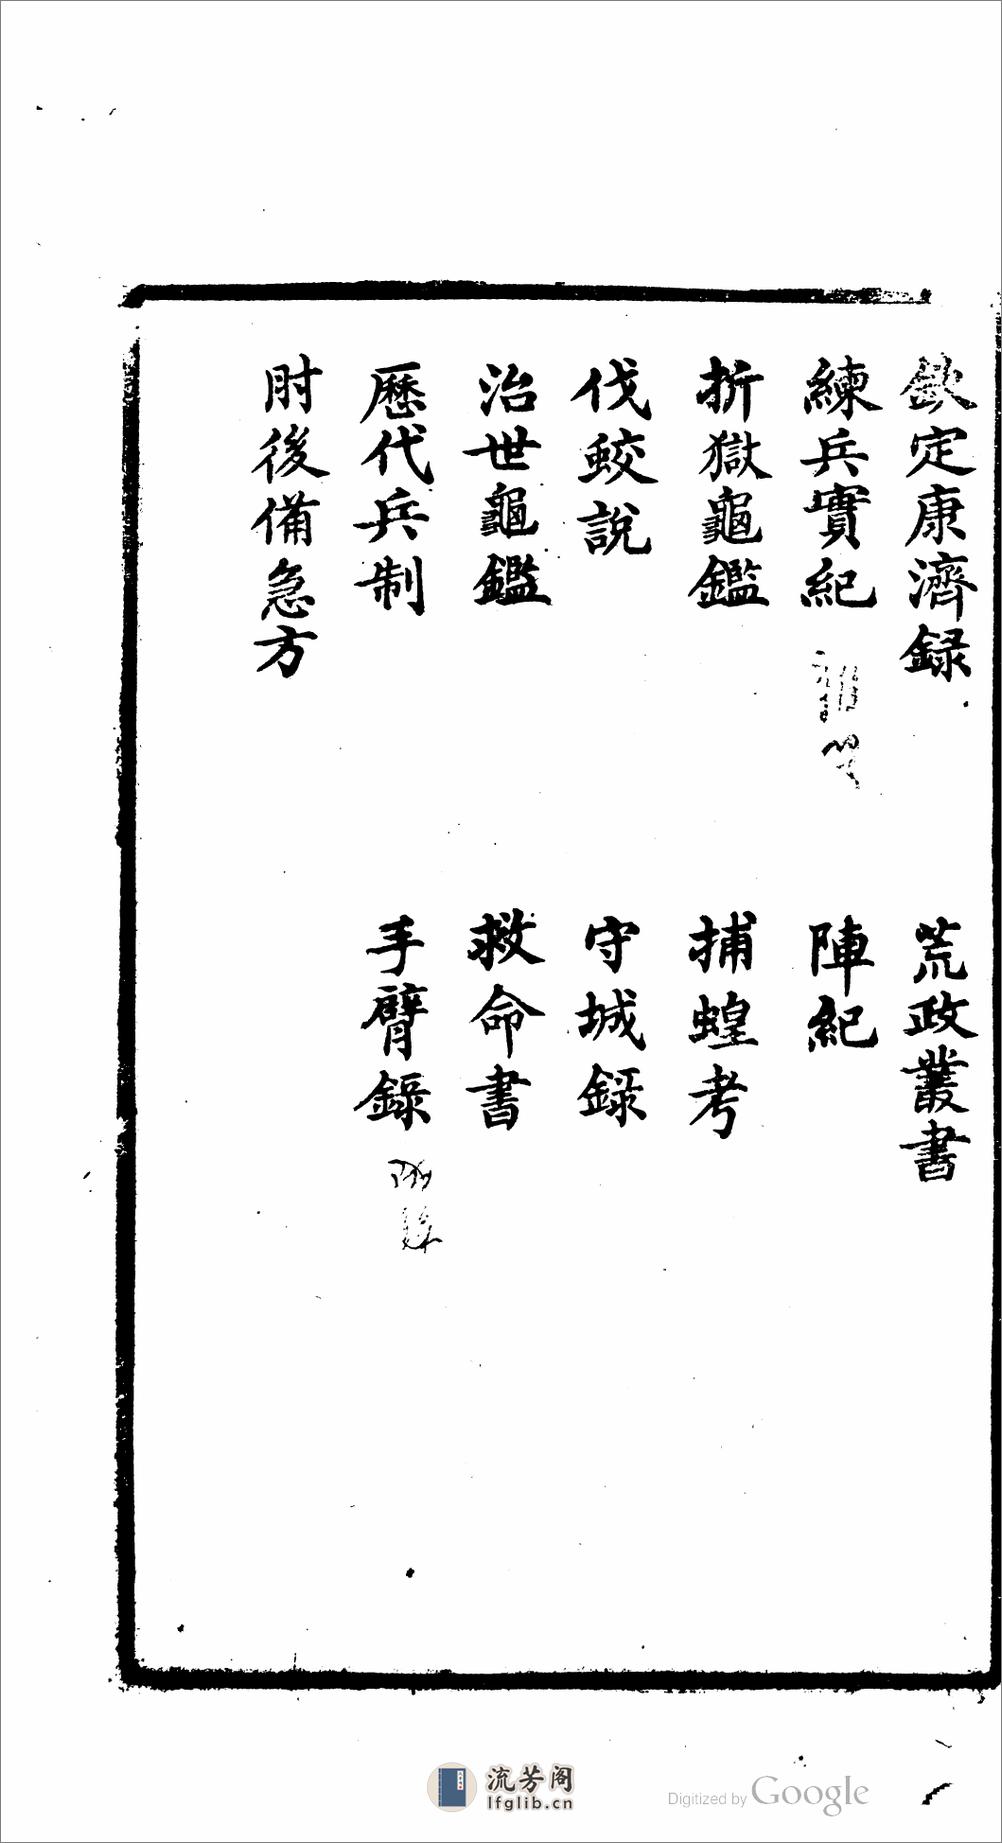 欽定康濟録
荒政叢書
練兵實紀
陣紀
折獄龜鑑
捕蝗考
伐蛟說
守城録
治世龜鑑
救命書
歷代兵制
手臂録
肘後備急方
流芳阁
lfglib.cn
Digitized by Google